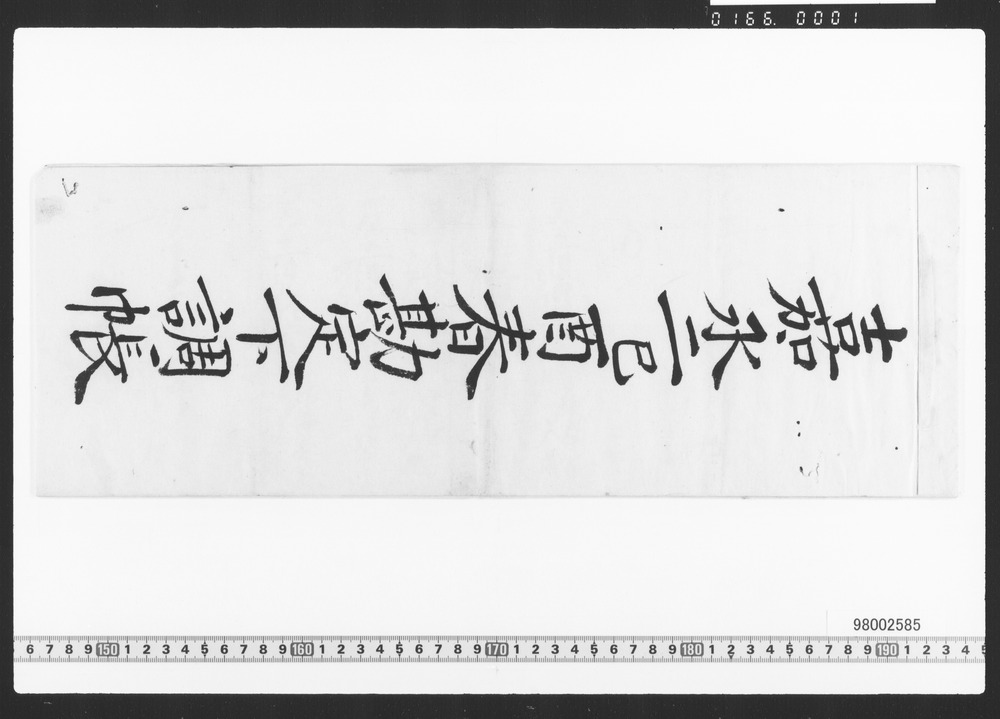 0166. 0001
嘉永二己酉春勘定下調帳
98002585
6 7 8 9 150 1 2 3 4 5 6 7 8 9 160 1 2 3 4 5 6 7 8 9 170 1 2 3 4 5 6 7 8 9 180 1 2 3 4 5 6 7 8 9 190 1 2 3 4 5